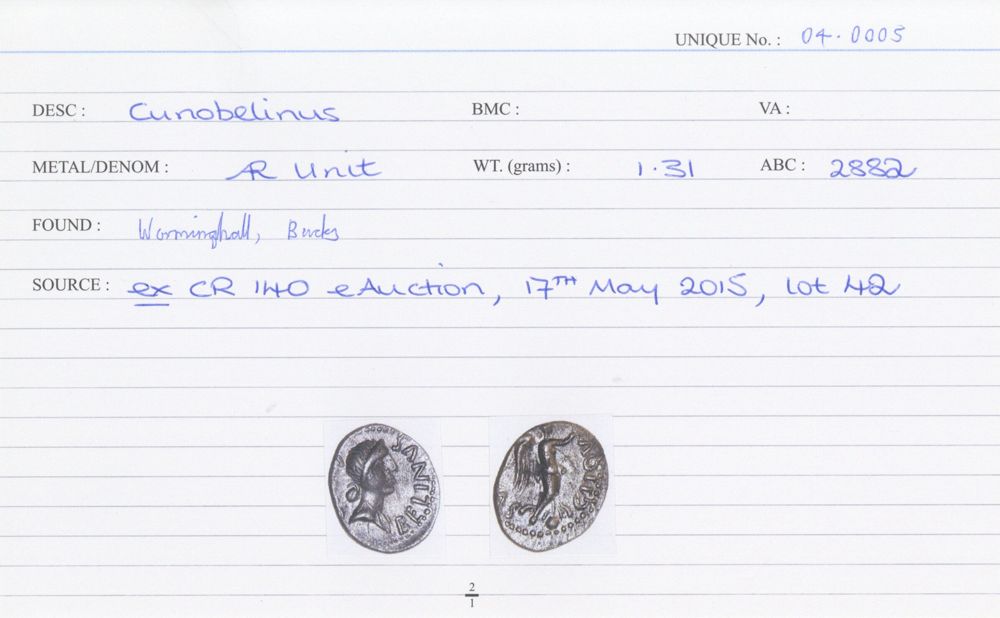 UNIQUE No. : 04.0005
DESC : Cunobelinus BMC : VA :
METAL/DENOM : AR Unit WT. (grams) : 1.31 ABC : 2882
FOUND : Worminghall, Bucks
SOURCE : ex CR 140 eAuction, 17TH May 2015, lot 42
2
1